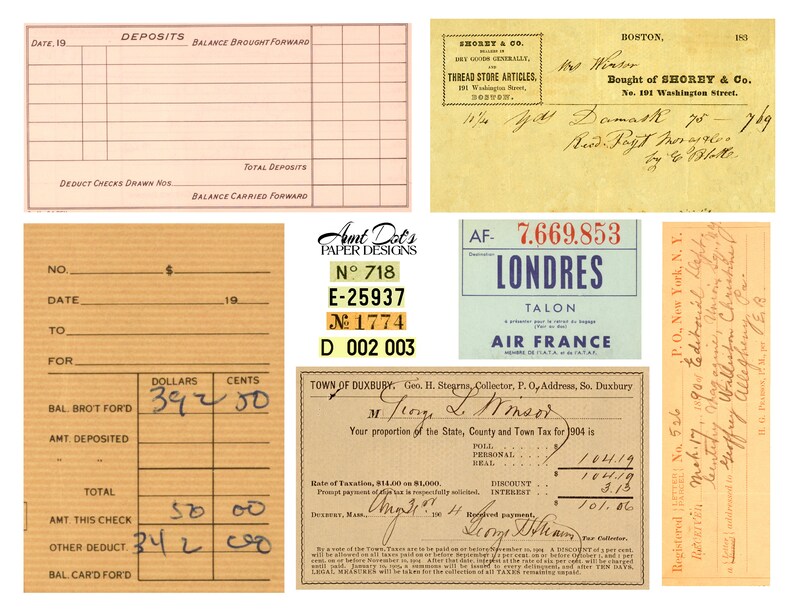 DEPOSITS
DATE, 19 BALANCE BROUGHT FORWARD
TOTAL DEPOSITS
DEDUCT CHECKS DRAWN NOS.
BALANCE CARRIED FORWARD
SHOREY & CO.
DEALERS IN
DRY GOODS GENERALLY,
AND
THREAD STORE ARTICLES,
191 Washington Street,
BOSTON.
BOSTON, 183
Mrs Winsor
Bought of SHOREY & Co.
No. 191 Washington Street.
10 1/4 Yds Damask 75 — 769
Recd. Payt
by
NO. $
DATE 19
TO
FOR
DOLLARS CENTS
BAL. BRO'T FOR'D 392 50
AMT. DEPOSITED
" "
TOTAL
AMT. THIS CHECK 50 00
OTHER DEDUCT. 342
BAL. CAR'D FOR'D
Aunt Dot's
PAPER DESIGNS
No 718
E-25937
No 1774
D 002 003
AF- 7.669.853
Destination
LONDRES
TALON
à présenter pour le retrait du bagage
(Voir au dos)
AIR FRANCE
MEMBRE DE L'I.A.T.A. et de l'A.T.A.F.
TOWN OF DUXBURY. Geo. H. Stearns, Collector, P. O., Address, So. Duxbury
M George L Winsor
Your proportion of the State, County and Town Tax for 1904 is
POLL $
PERSONAL
REAL 104.19
$ 104.19
Rate of Taxation, $14.00 on $1,000. DISCOUNT 3.13
Prompt payment of this tax is respectfully solicited. INTEREST
$ 101.06
DUXBURY, MASS., Aug 31st 1904 Received payment,
George H Stearns Tax Collector.
By a vote of the Town, Taxes are to be paid on or before November 10, 1904 A DISCOUNT of 3 per cent.
will be allowed on all taxes paid on or before September 1, 2 per cent. on or before October 1, and 1 per
cent. on or before November 10, 1904 After that date, interest at the rate of six per cent. will be charged
until paid. January 10, 1905, a summons will be issued to every delinquent, and after TEN DAYS,
LEGAL MEASURES will be taken for the collection of ALL TAXES remaining unpaid.
Registered LETTER PARCEL No. 526 P. O., New York, N. Y.
RECEIVED Mch. 17, 1890 Editorial Dept.
Century Magazine, Union Sq. NY
a Letter addressed to Williston
Geoffrey
Allegheny Pa.
H. G. PEARSON, P. M., per E.B.